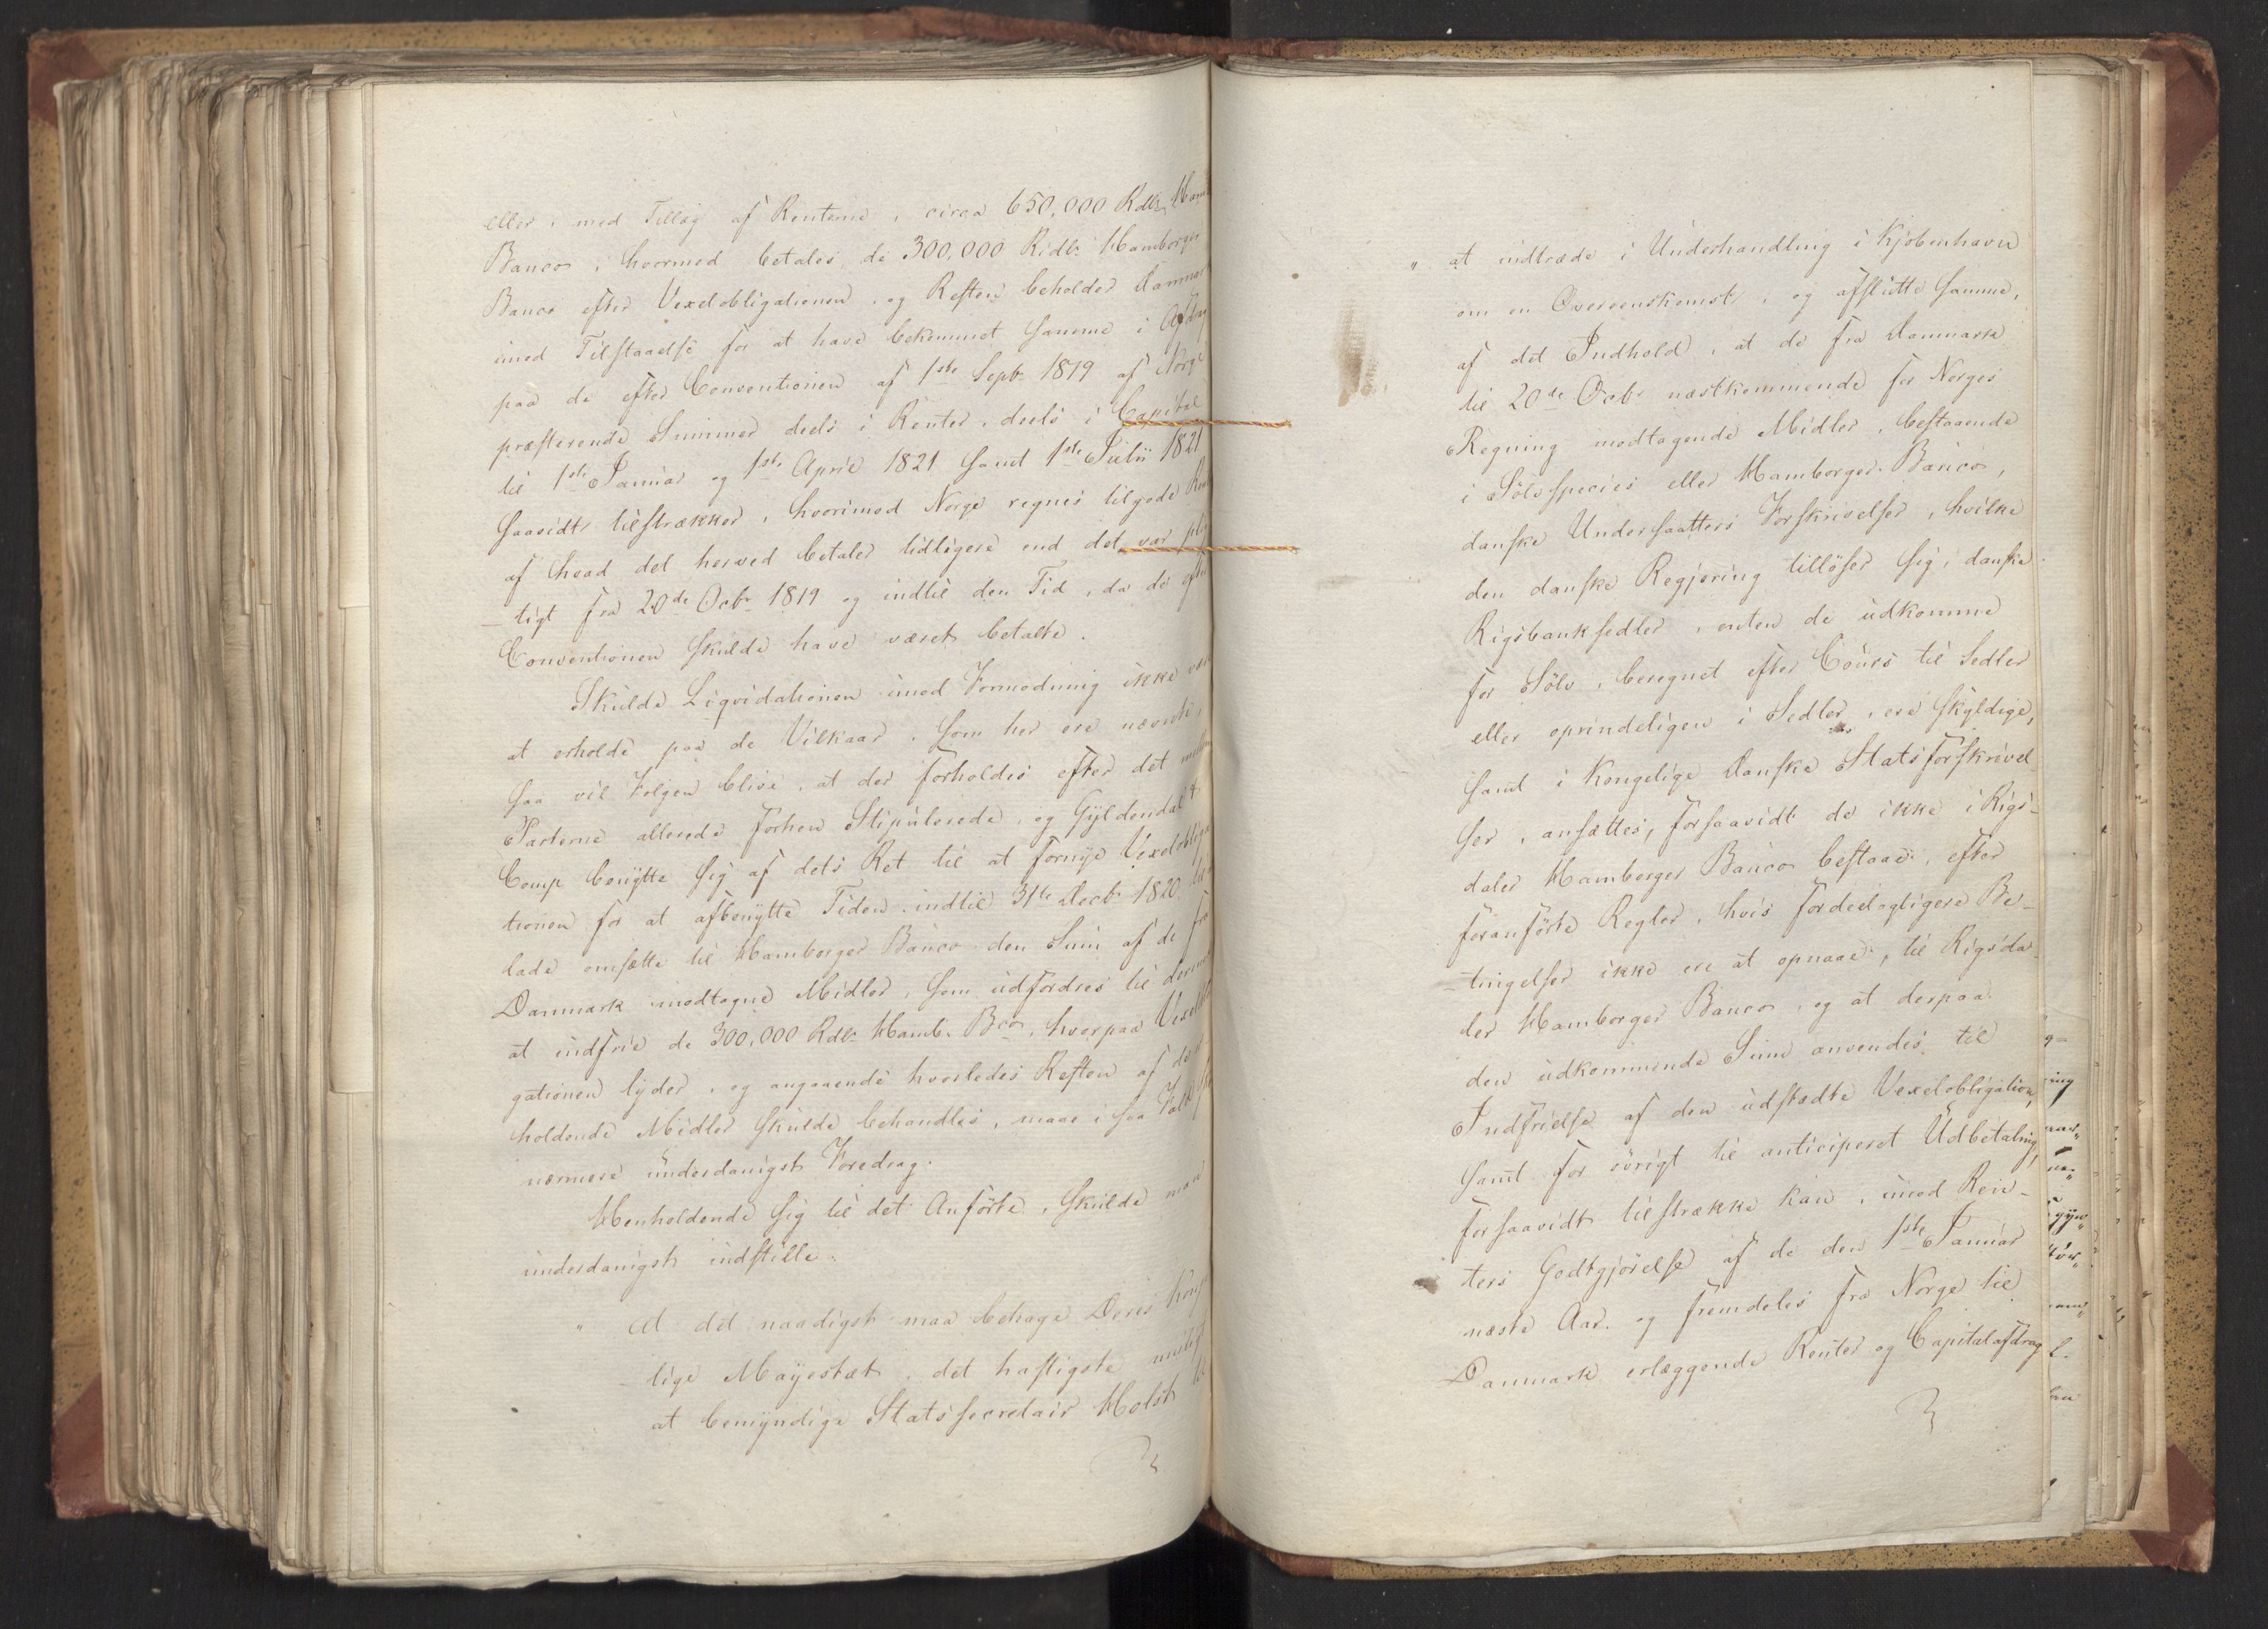 eller, med Tillæg af Renterne, circa 650,000 Rdlr Hamb
Banco, hvormed betales de 300,000 Ridlr Hamborger
Banco efter Vexelobligationen, og Resten beholder Danmar
imod Tilstaaelse for at have bekommet samme i Afdrag
paa de efter Conventionen af 1ste Septbr 1819 af Norge
præsterende Summer deels i Renter, deels i Capital
til 1ste Januar og 1ste April 1821 samt 1ste Julii 1821
saavidt tilstrækker, hvorimod Norge regnes tilgode Ren
af hvad det herved betaler tidligere end det var pli
-tigt fra 20de Octbr 1819 og indtil den Tid, da de efter
Conventionen skulde have været betalte.
Skulde Liqvidationen imod Formodning ikke være
at erholde paa de Vilkaar, som her ere nævnte,
saa vil Følgen blive, at der forholdes efter det mellem
Parterne allerede forhen Stipulerede, og Gyldendal &
Comp benytte sig af dets Ret til at fornye Vexelobliga
tionen for at afbenytte Tiden indtil 31te Decbr 1820 til
lade omsætte til Hamborger Banco den Sum af de fra
Danmark modtagne Midler, som udfordres til dermed
at indfrie de 300,000 Rdlr Hamb. Bco, hvorpaa Vexelobli
gationen lyder, og angaaende hvorledes Resten af de
holdende Midler skulde behandles, maae i saa Fald
nærmere underdanigst Foredrag.
Henholdende sig til det Anførte, skulde man
underdanigst indstille:
" At det naadigst maa behage Deres Konge
-lige Mayestæt, det hastigste muligt
at bemyndige Statssecretair Holst til
" at indtræde i Underhandling i Kjøbenhavn
om en Overeenskomst, og afslutte samme,
af det Indhold, at de fra Danmark
til 20de Octbr næstkommende for Norges
Regning modtagende Midler, bestaaende
i Sølvspecies eller Hamborger Banco,
danske Undersaatters Forskrivelser, hvilke
den danske Regjering tilløser sig, danske
Rigsbanksedler, enten de udkomme
for Sølv, beregnet efter Cours til Sedler
eller oprindeligen i Sedler, ere skyldige,
samt i Kongelige Danske Statsforskrivel
ser, ansættes, forsaavidt de ikke i Rigs-
daler Hamborger Banco bestaae, efter
foranførte Regler, hvis fordeelagtigere Be-
-tingelser ikke ere at opnaae, til Rigsda-
ler Hamborger Banco, og at derpaa
den udkommende Sum anvendes til
Indfrielse af den udstædte Vexelobligation,
samt for øvrigt til anticiperet Udbetaling,
forsaavidt tilstrække kan, imod Ren-
ters Godtgjørelse af de den 1ste Januar
næste Aar og fremdeles fra Norge til
Danmark erlæggende Renter og Capitalafdrag